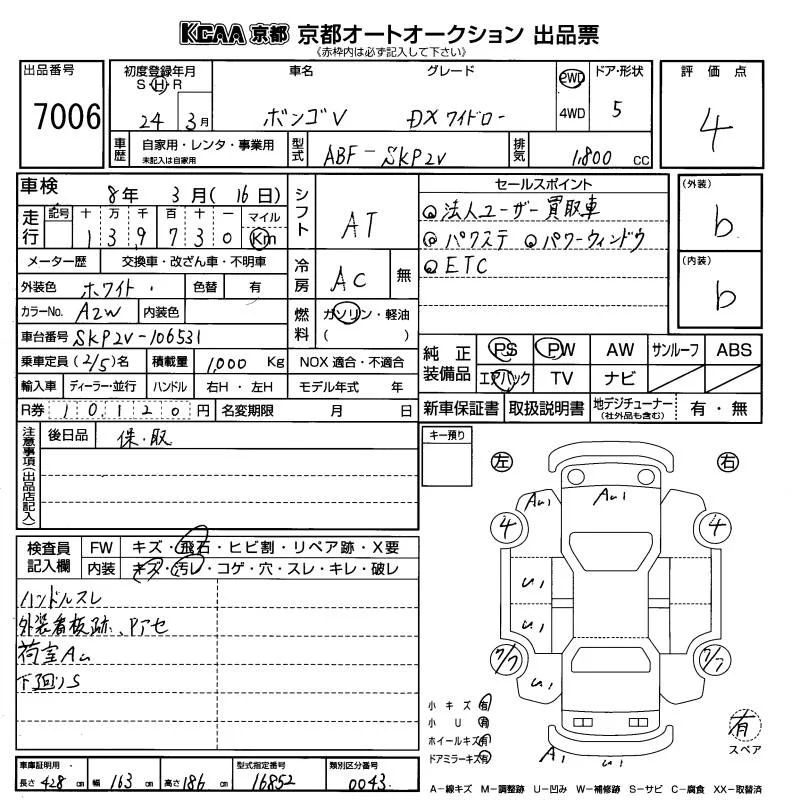 KCAA 京都 京都オートオークション 出品票
《赤枠内は必ず記入して下さい》
出品番号 7006
初度登録年月 S・H・R 24 3月
車名 ボンゴV
グレード DXワイドロー
2WD 4WD
ドア・形状 5
評価点 4
車歴 自家用・レンタ・事業用 未記入は自家用
型式 ABF-SKP2V
排気 1,800 CC
車検 8年 3月(16日)
走行 記号 十万千百十一 139730 マイル Km
メーター歴 交換車・改ざん車・不明車
外装色 ホワイト 色替 有
カラーNo. A2W 内装色
車台番号 SKP2V-106531
乗車定員 (2/5)名 積載量 1,000 Kg NOX 適合・不適合
輸入車 ディーラー・並行 ハンドル 右H・左H モデル年式 年
R券 10,120円 名変期限 月 日
シフト AT
冷房 AC 無
燃料 ガソリン・軽油 ( )
セールスポイント
◎法人ユーザー買取車
◎パワステ ◎パワーウィンドウ
◎ETC
(外装) b
(内装) b
純正装備品 PS PW AW サンルーフ ABS
エアバック TV ナビ
新車保証書 取扱説明書 地デジチューナー (社外品も含む) 有・無
注意事項(出品店記入)
後日品 保・取
キー預り
左 右
検査員記入欄
FW キズ・飛石・ヒビ割・リペア跡・X要
内装 キズ・汚レ・コゲ・穴・スレ・キレ・破レ
ハンドルスレ
外装看板跡、Pアセ
荷室AU
下回りS
AU1 AU1
4 4
U1
U1
7/7 7/7
U1
A1 U1
小キズ 有
小U 有
ホイールキズ 有
ドアミラーキズ 有
有 スペア
車庫証明用・長さ 428 cm 幅 163 cm 高さ 186 cm
型式指定番号 16852
類別区分番号 0043
A-線キズ M-調整跡 U-凹み W-補修跡 S-サビ C-腐食 XX-取替済